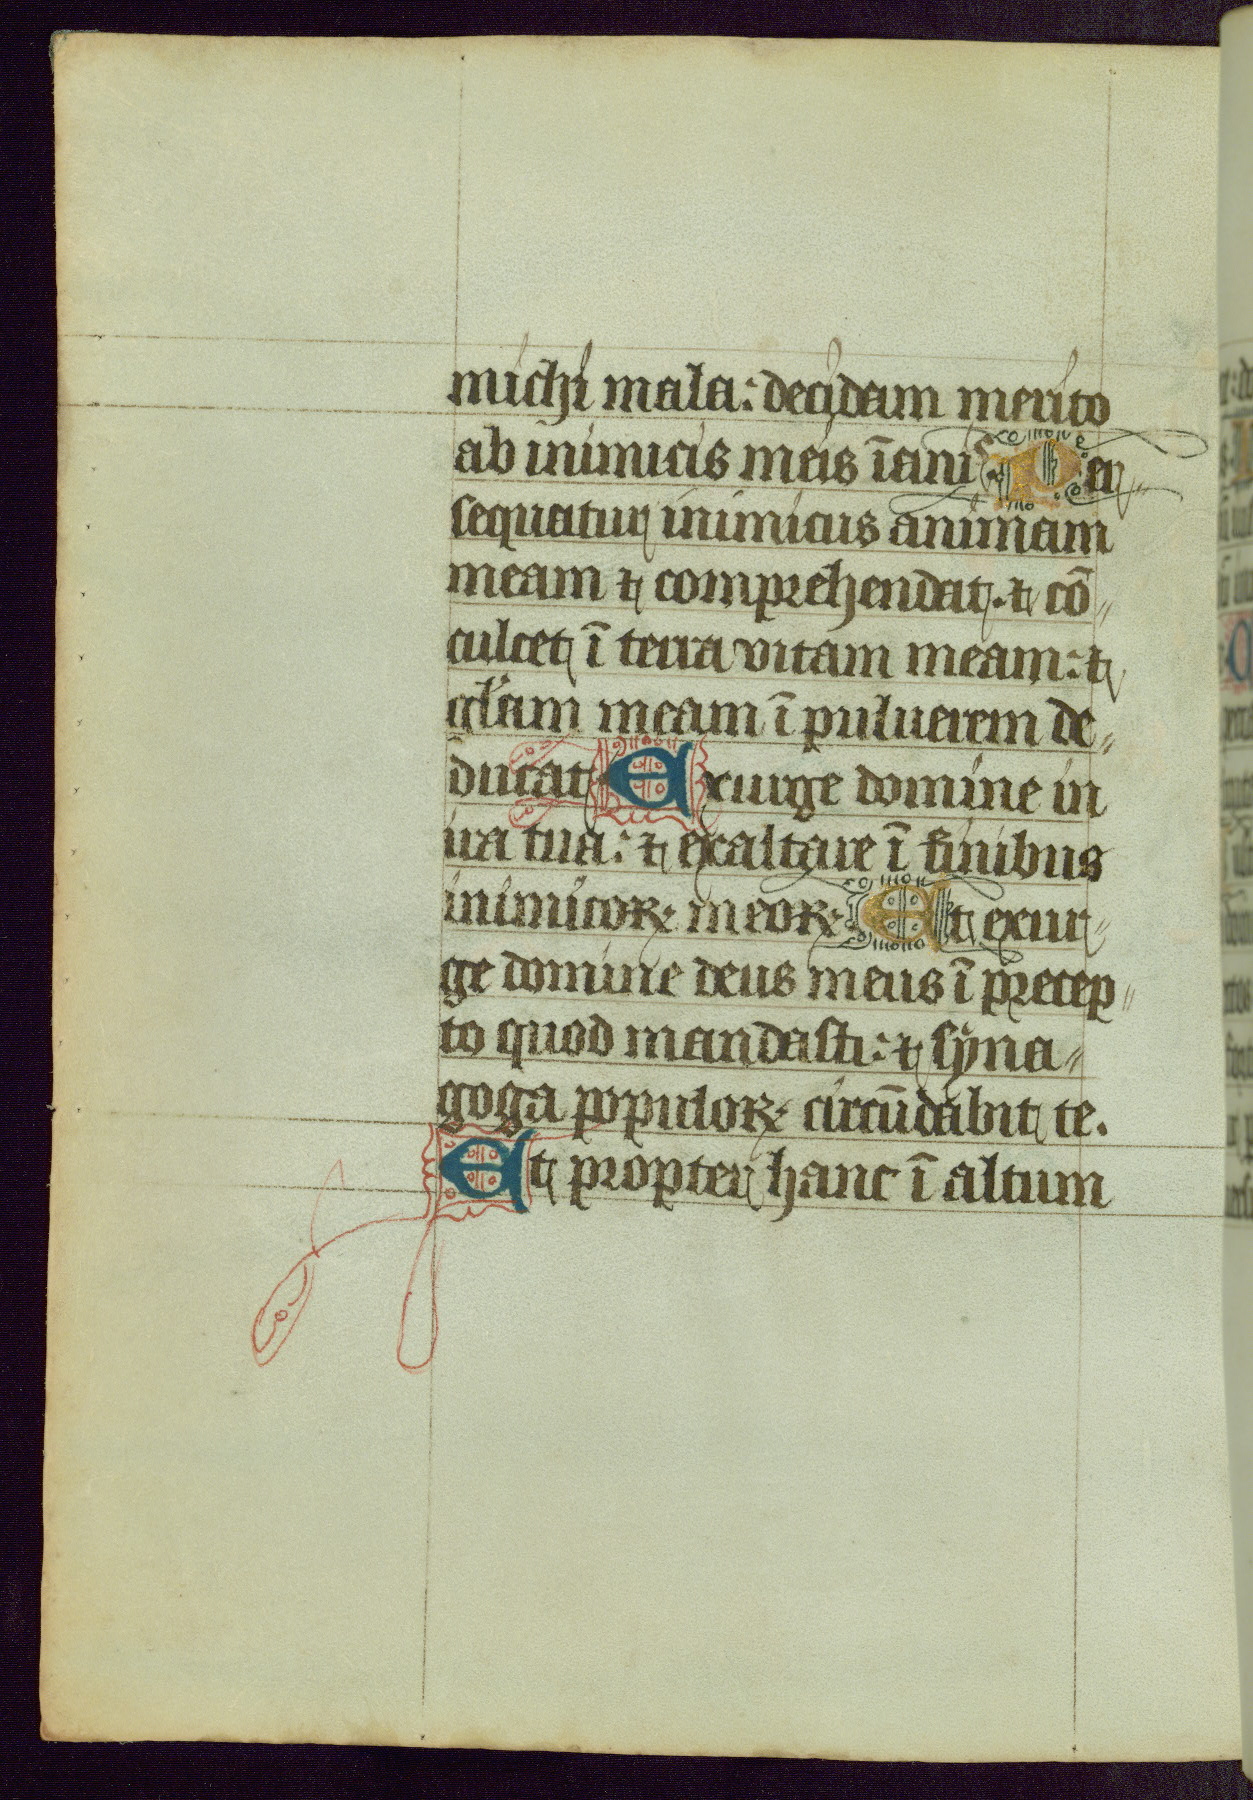 michi mala: decidam merito
ab inimicis meis īanis Per
sequatur inimicus animam
meam ⁊ comprehendat. ⁊ cō
culcet ī terra vitam meam: ⁊
gl̄am meam ī puluerem de
ducat Exurge domine in
ira tua: ⁊ exaltare ī finibus
inimicoꝝ meoꝝ Et exur
ge domine deus meus ī precep
to quod mandasti: ⁊ syna
goga populoꝝ circūdabit te.
Et propter hanc ī altum